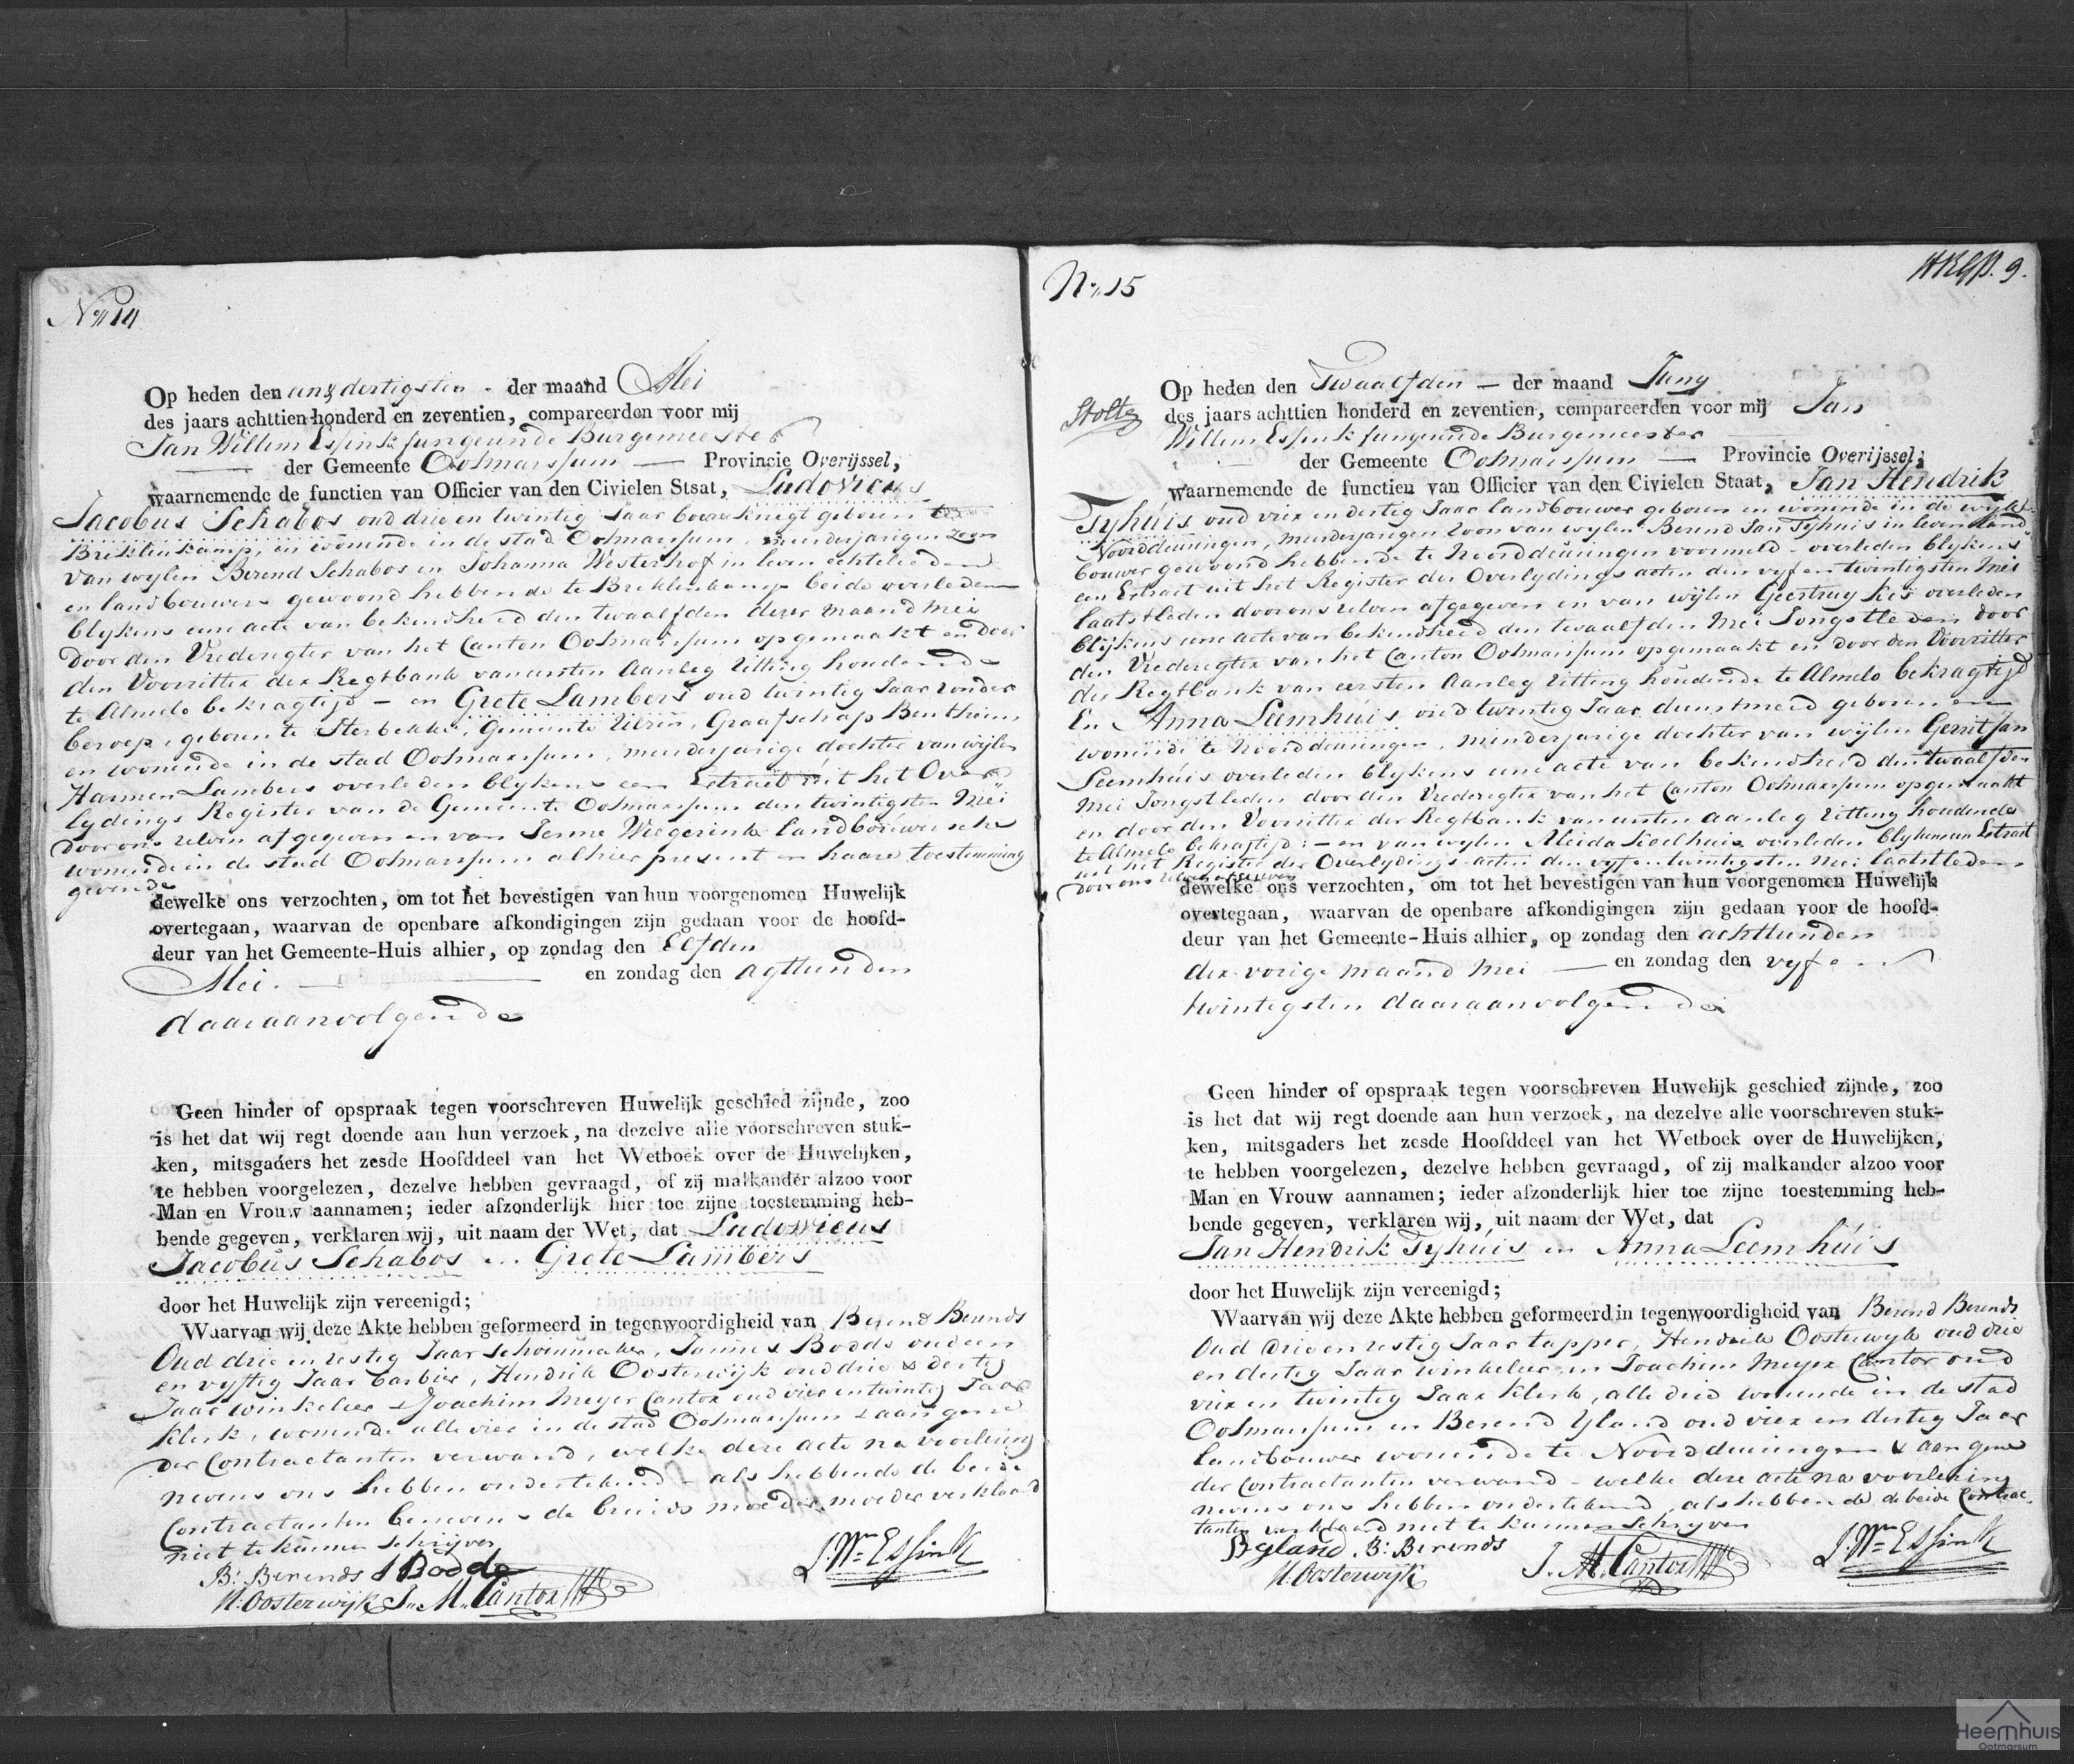 No 14
Op heden den een & dertigsten - der maand Mei
des jaars achttien-honderd en zeventien, compareerden voor mij
Jan Willem Essink fungeerende Burgemeester
der Gemeente Ootmarssum — Provincie Overijssel,
waarnemende de functien van Officier van den Civielen Stsat, Ludovicus
Jacobus Schabos oud drie en twintig Jaar boereknegt geboren te
Breklinkamp, en wonende in de stad Ootmarssum, meerderjarigen zoon
van wylen Berend Schabos en Johanna Westerhof in leven echtelieden
en landbouwers gewoond hebbende te Breklenkamp beide overleden
blykens eene acte van bekendheid den twaalfden dezer maand Mei
door den Vrederegter van het Canton Ootmarssum opgemaakt en door
den Voorzitter der Regtbank van eersten Aanleg Zitting houdende
te Almelo bekragtigd - en Grete Lambers oud twintig Jaar zonder
beroep, geboren te Itterbekke, Gemeente Ulzen, Graafschap Bentheim
en wonende in de stad Ootmarssum, minderjarige dochter van wylen
Harmen Lambers overleden blykens een Extract uit het Over
lydings Register van de Gemeente Ootmarssum den twintigsten Mei
door ons zelven afgegeven en van Jenne Wiegerink landbouwersche
wonende in de stad Ootmarssum alhier present en haare toestemming
gevende
dewelke ons verzochten, om tot het bevestigen van hun voorgenomen Huwelijk
overtegaan, waarvan de openbare afkondigingen zijn gedaan voor de hoofd-
deur van het Gemeente-Huis alhier, op zondag den Elfden
Mei. — en zondag den agttienden
daaraanvolgende
Geen hinder of opspraak tegen voorschreven Huwelijk geschied zijnde, zoo
is het dat wij regt doende aan hun verzoek, na dezelve alle voorschreven stuk-
ken, mitsgaders het zesde Hoofddeel van het Wetboek over de Huwelijken,
te hebben voorgelezen, dezelve hebben gevraagd, of zij malkander alzoo voor
Man en Vrouw aannamen; ieder afzonderlijk hier toe zijne toestemming heb-
bende gegeven, verklaren wij, uit naam der Wet, dat Ludovicus
Jacobus Schabos en Grete Lambers
door het Huwelijk zijn vereenigd;
Waarvan wij deze Akte hebben geformeerd in tegenwoordigheid van Berend Berends
Oud drie en zestig Jaar schoenmaker, Jannes Bodde oud een
en vyftig Jaar barbier, Hendrik Oosterwijk oud drie & dertig
Jaar winkelier & Joachim Meyer Cantor oud vier en twintig Jaar
klerk, wonende alle vier in de stad Ootmarssum & aan geene
der Contractanten verwand, welke deze acte na voorlezing
nevens ons hebben ondertekend - als hebbende de beide
Contractanten benevens de bruids moeder, moeder verklaard
niet te kunnen schrijven
B: Berends J Bodde J. Wm Essink
H: Oosterwijk J. M. Cantor
No 15
HRGP. 9.
Stolte
Op heden den Twaalfden — der maand Juny
des jaars achttien honderd en zeventien, compareerden voor mij Jan
Willem Essink fungeerende Burgemeester
der Gemeente Ootmarssum — Provincie Overijssel,
waarnemende de functien van Officier van den Civielen Staat, Jan Hendrik
Tyhuis oud vier en dertig Jaar landbouwer geboren en wonende in de wykt
Noorddeuningen, meerderjarigen zoon van wylen Berend Jan Tyhuis in leven land
bouwer gewoond hebbende te Noorddeuningen voormeld - overleden blykens
een Extract uit het Register der Overlydings acten den vyf en twintigsten Mei
laatstleden door ons zelven afgegeven en van wylen Geestruy Kes overleden
blykens eene acte van bekendheid den twaalfden Mei Jongstleden door
den Vrederegter van het Canton Ootmarssum opgemaakt en door den Voorzitter
der Regtbank van eersten Aanleg Zitting houdende te Almelo bekragtigd
En Anna Leemhuis oud twintig Jaar dienstmeid geboren en
wonende te Noorddeuningen, minderjarige dochter van wijlen Gerrit Jan
Leemhuis overleden blykens eene acte van bekendheid den twaalfden
Mei Jongstleden door den Vrederegter van het Canton Ootmarssum opgemaakt
en door den Voorzitter der Regtbank van eersten Aanleg Zitting houdende
te Almelo bekragtigd: - en van wylen Aleida Koelhuis overleden blykens een Extract
uit het Register der Overlydings acten den vyf en twintigsten Mei laatstleden
door ons zelven afgegeven
dewelke ons verzochten, om tot het bevestigen van hun voorgenomen Huwelijk
overtegaan, waarvan de openbare afkondigingen zijn gedaan voor de hoofd-
deur van het Gemeente-Huis alhier, op zondag den achttienden
der vorige maand Mei — en zondag den vyf en
twintigsten daaraanvolgende
Geen hinder of opspraak tegen voorschreven Huwelijk geschied zijnde, zoo
is het dat wij regt doende aan hun verzoek, na dezelve alle voorschreven stuk-
ken, mitsgaders het zesde Hoofddeel van het Wetboek over de Huwelijken,
te hebben voorgelezen, dezelve hebben gevraagd, of zij malkander alzoo voor
Man en Vrouw aannamen; ieder afzonderlijk hier toe zijne toestemming heb-
bende gegeven, verklaren wij, uit naam der Wet, dat
Jan Hendrik Tyhuis en Anna Leemhuis
door het Huwelijk zijn vereenigd;
Waarvan wij deze Akte hebben geformeerd in tegenwoordigheid van Berend Berends
Oud drie en zestig Jaar tapper, Hendrik Oosterwyk oud drie
en dertig Jaar winkelier en Joachim Meyer Cantor oud
vier en twintig Jaar klerk, alle drie wonende in de stad
Ootmarssum en Berend Yland oud vier en dertig Jaar
landbouwer wonende te Noorddeuningen & aan geene
der Contractanten verwand - welke deze acte na voorlezing
nevens ons hebben ondertekend, als hebbende de beide Contrac-
tanten verklaard niet te kunnen schryven
B yland. B: Berends J. Wm Essink
H. Oosterwijk J. M. Cantor
Heemhuis
Ootmarsum